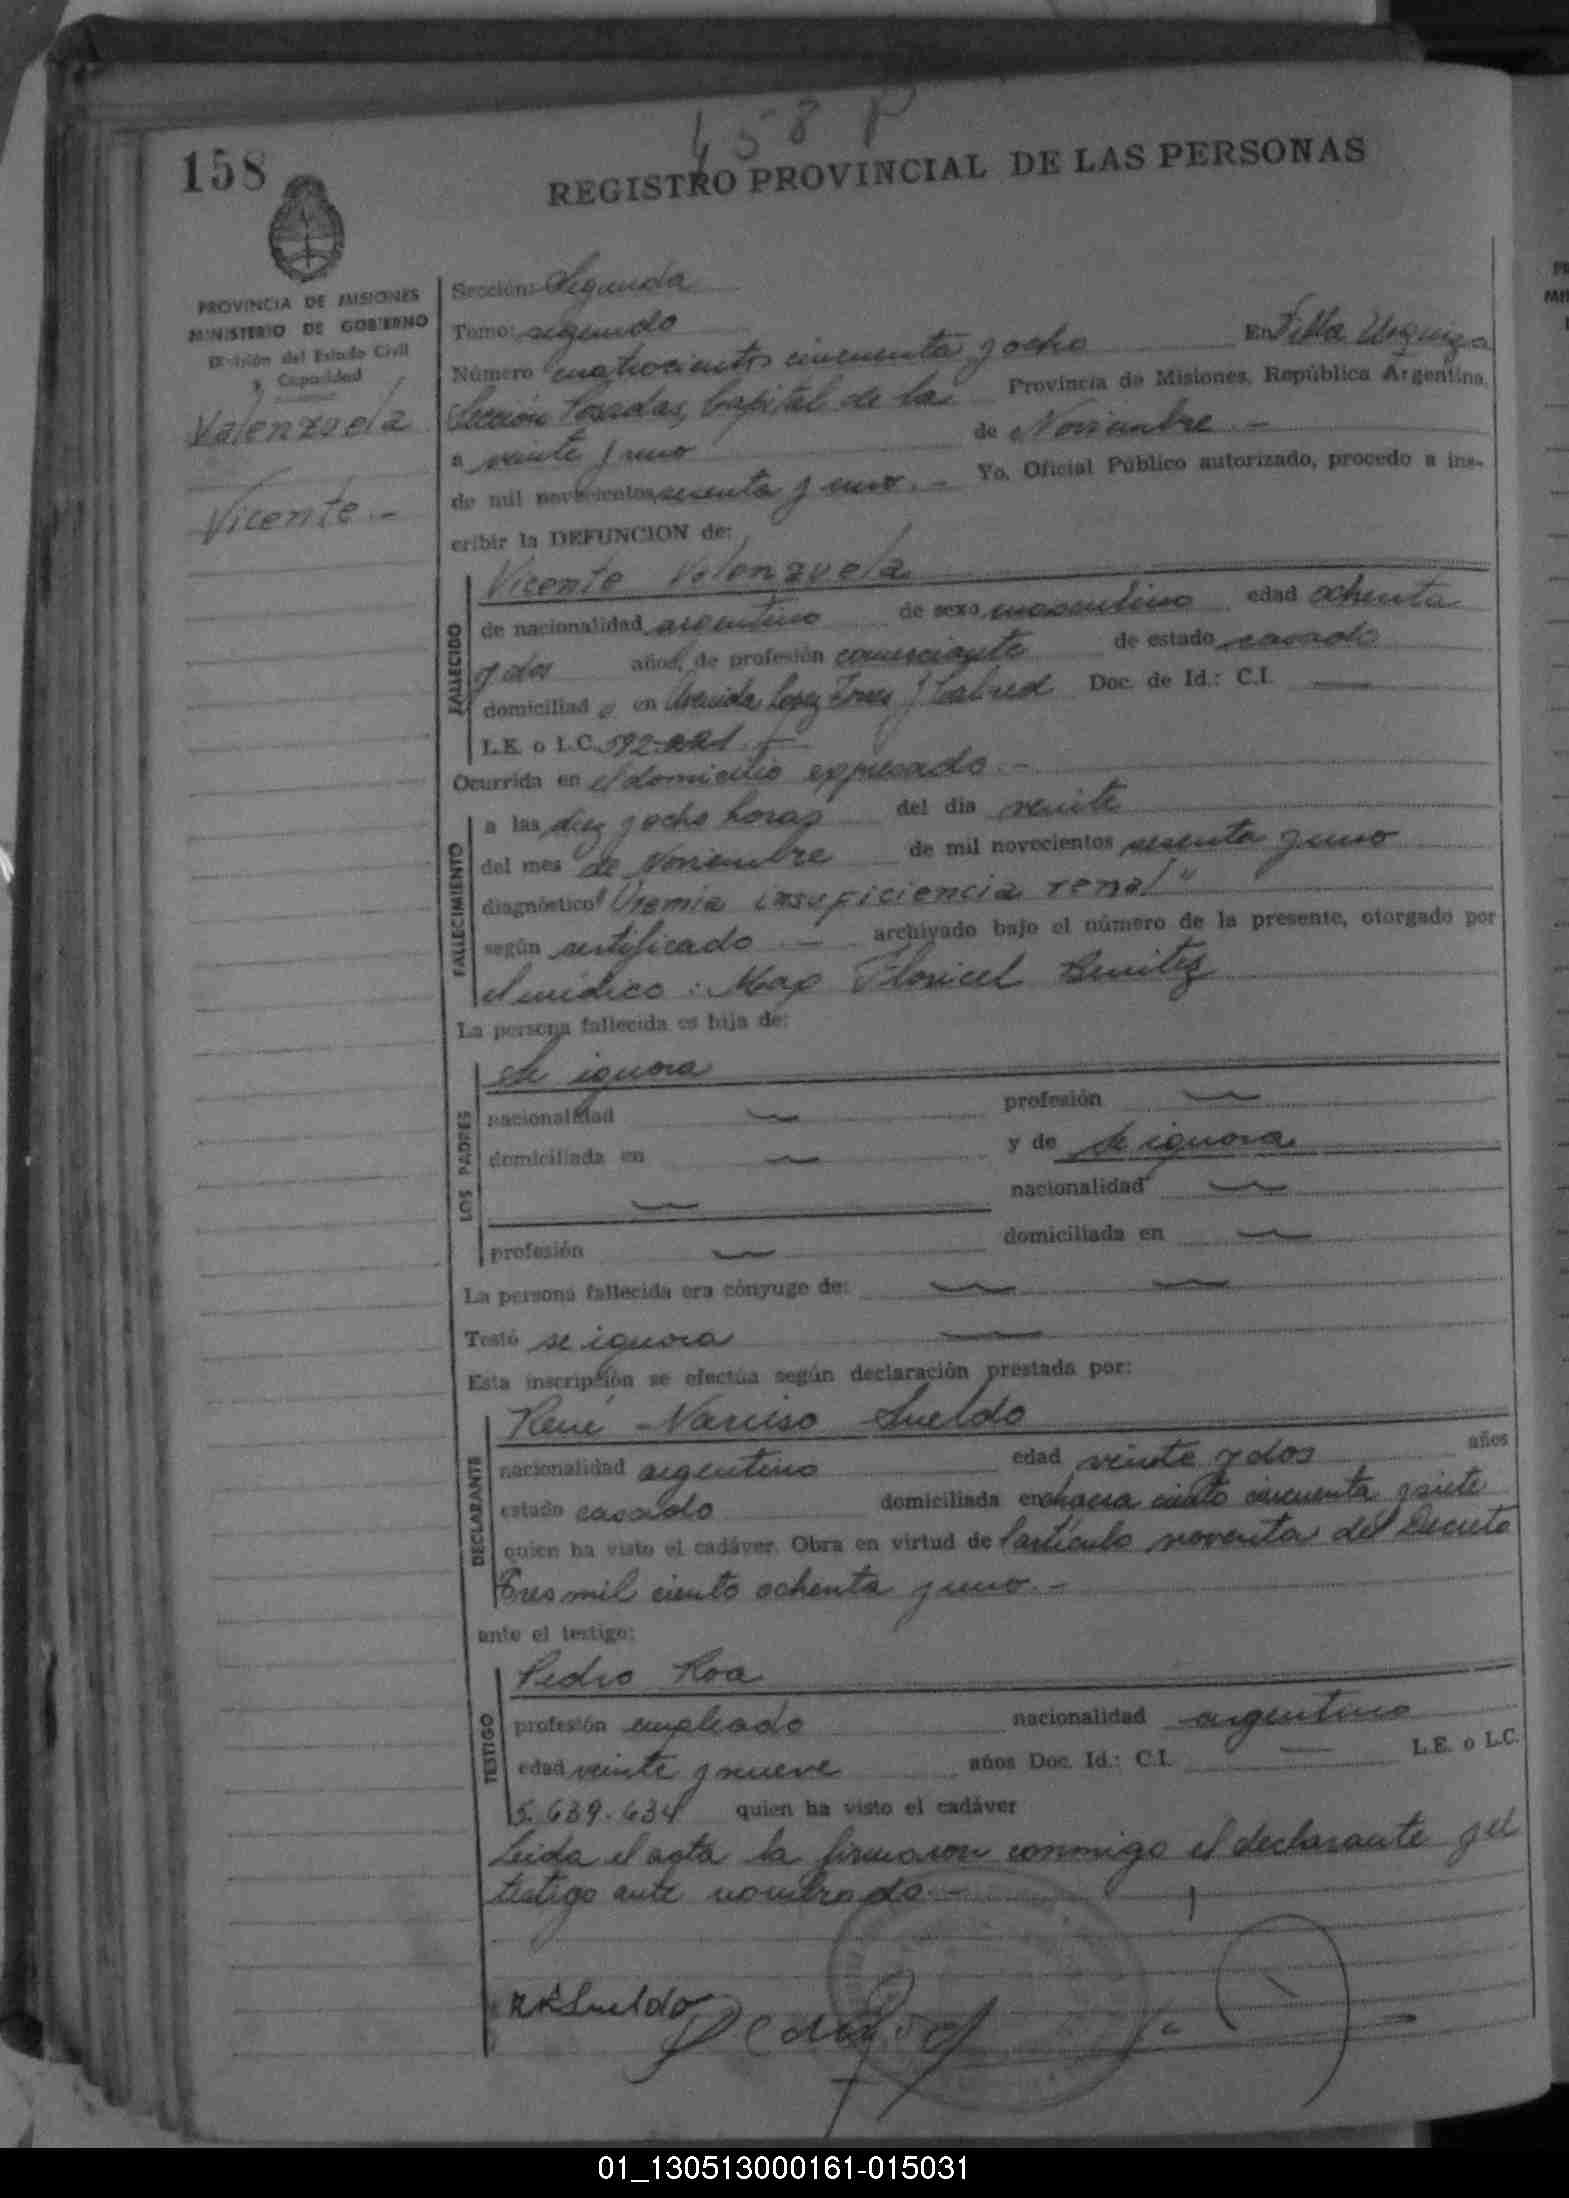 458 P
158
REGISTRO PROVINCIAL DE LAS PERSONAS
PROVINCIA DE MISIONES
MINISTERIO DE GOBIERNO
División del Estado Civil
y Capacidad
Valenzuela
Vicente.-
Sección: Segunda
Tomo: segundo
Número cuatrocientos cincuenta y ocho En Villa Urquiza
Sección Posadas, Capital de la Provincia de Misiones, República Argentina,
a veinte y uno de Noviembre.-
de mil novecientos sesenta y uno.- Yo, Oficial Público autorizado, procedo a ins-
cribir la DEFUNCION de:
Vicente Valenzuela
FALLECIDO
de nacionalidad argentino de sexo masculino edad ochenta
y dos años, de profesión comerciante de estado casado
domiciliad o en Avenida Lopez Torres y Cabred Doc. de Id.: C.I. —
L.E. o L.C. 592.221.-
Ocurrida en el domicilio expresado.-
FALLECIMIENTO
a las diez y ocho horas del día veinte
del mes de Noviembre de mil novecientos sesenta y uno
diagnóstico "Uremia insuficiencia renal"
según certificado - archivado bajo el número de la presente, otorgado por
el médico: Max Floricel Benitez
La persona fallecida es hija de:
LOS PADRES
Se ignora
nacionalidad — profesión —
domiciliada en — y de se ignora
— nacionalidad —
profesión — domiciliada en —
La persona fallecida era cónyuge de: — —
Testó se ignora —
Esta inscripción se efectúa según declaración prestada por:
DECLARANTE
René Narciso Sueldo
nacionalidad argentino edad veinte y dos años
estado casado domiciliada en chacra ciento cincuenta y siete
quien ha visto el cadáver. Obra en virtud de l artículo noventa del Decreto
Tres mil ciento ochenta y uno.-
ante el testigo:
TESTIGO
Pedro Roa
profesión empleado nacionalidad argentino
edad veinte y nueve años Doc. Id.: C.I. — L.E. o L.C.
5.639.634 quien ha visto el cadáver
Leida el acta la firmaron conmigo el declarante y el
testigo ante nombrado.-
RNSueldo
Pedro Roa
01_130513000161-015031